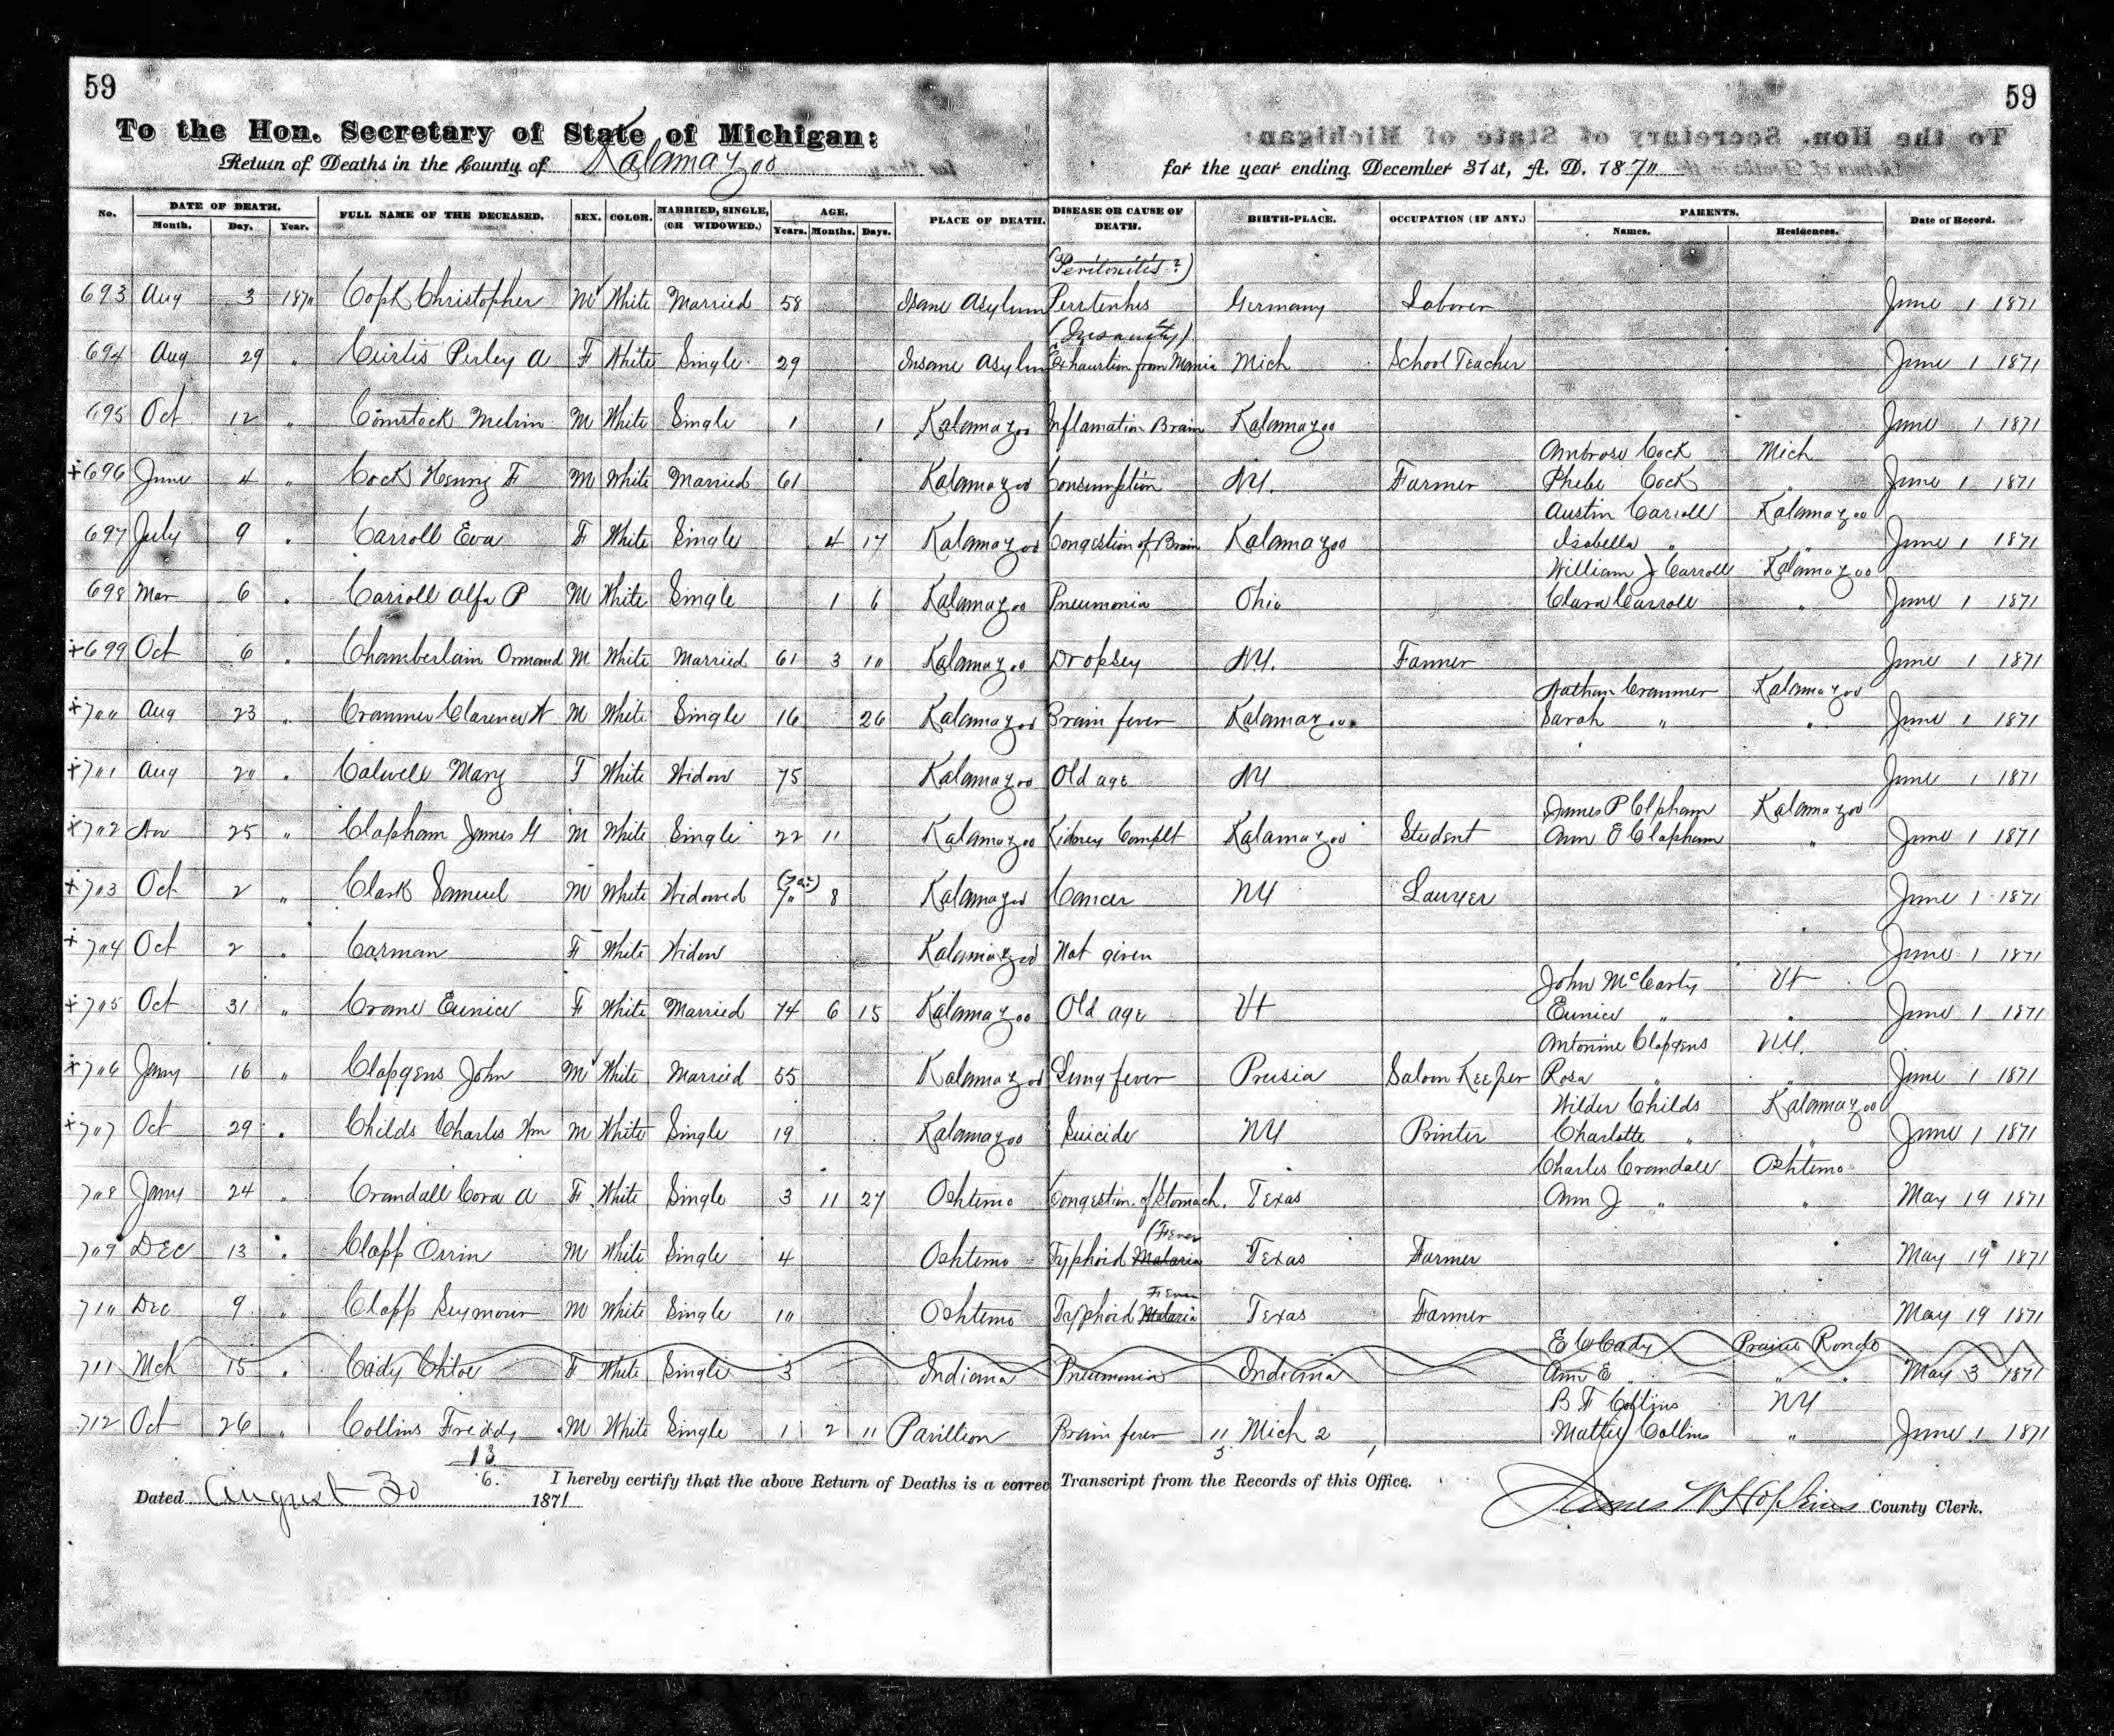 59
59
To the Hon. Secretary of State of Michigan:
Return of Deaths in the County of Kalamazoo
for the year ending December 31st, A. D. 1870
No. DATE OF DEATH. FULL NAME OF THE DECEASED. SEX. COLOR. MARRIED, SINGLE, (OR WIDOWED.) AGE. PLACE OF DEATH. DISEASE OR CAUSE OF DEATH. BIRTH-PLACE. OCCUPATION (IF ANY.) PARENTS. Date of Record.
Month. Day. Year. Years. Months. Days. Names. Residences.
(Peritonitis?)
693 Aug 3 1870 Copk Christopher M White Married 58 Isane Asylum Germany Laborer June 1 1871
(Insanity)
694 Aug 29 " Curtis Perley A F White Single 29 Insane Asylum Exhaustion from Mania Mich School Teacher June 1 1871
695 Oct 12 " Comstock Melvin M White Single 1 1 Kalamazoo Inflamation Brain Kalamazoo June 1 1871
Ambrose Cock Mich
+696 June 4 " Cock Henry F M White Married 61 Kalamazoo Consumption NY. Farmer Phebe Cock " June 1 1871
Austin Carroll Kalamazoo
697 July 9 " Carroll Eva F White Single 4 17 Kalamazoo Congestion of Brain Kalamazoo Isabella " " June 1 1871
William J Carroll Kalamazoo
698 Mar 6 " Carroll Alfa P M White Single 1 6 Kalamazoo Pneumonia Ohio Clara Carroll " June 1 1871
+699 Oct 6 " Chamberlain Ormand M White Married 61 3 10 Kalamazoo Dropsey NY. Farmer June 1 1871
Nathan Cranmer Kalamazoo
+700 Aug 23 " Cranmer Clarence W M White Single 16 26 Kalamazoo Brain fever Kalamazoo Sarah " " June 1 1871
+701 Aug 20 " Calwell Mary F White Widow 75 Kalamazoo Old age NY June 1 1871
James P Clpham Kalamazoo
+702 Nov 25 " Clapham James H M White Single 22 11 Kalamazoo Kidney Complt Kalamazoo Student Ann E Clapham " June 1 1871
+703 Oct 2 " Clark Samuel M White Widowed 70 8 Kalamazoo Cancer NY Lawyer June 1 1871
+704 Oct 2 " Carman F White Widow Kalamazoo Not given June 1 1871
John McCarty Vt
+705 Oct 31 " Crane Eunice F White Married 74 6 15 Kalamazoo Old age Vt Eunice " " June 1 1871
Antonine Clapgens NY.
+706 Jany 16 " Clapgens John M White Married 55 Kalamazoo Lung fever Prusia Saloon Keeper Rosa " " June 1 1871
Wilder Childs Kalamazoo
+707 Oct 29 " Childs Charles Wm M White Single 19 Kalamazoo Suicide NY Printer Charlotte " " June 1 1871
Charles Crandall Oshtemo
708 Jany 24 " Crandall Cora A F White Single 3 11 27 Oshtemo Congestion of Stomach. Texas Ann J " " May 19 1871
(Fever
709 Dec 13 " Clapp Orrin M White Single 4 Oshtemo Typhoid Malaria Texas Farmer May 19 1871
Fever
710 Dec 9 " Clapp Seymour M White Single 10 Oshtemo Typhoid Malaria Texas Farmer May 19 1871
E W Cady Prairie Ronde
711 Mch 15 " Cady Chloe F White Single 3 Indiana Pneumonia Indiana Ann E " " " May 3 1871
B F Collins NY
712 Oct 26 " Collins Freddy M White Single 1 2 11 Pavillion Brain fever 11 Mich 2 Mattie Collins " June 1 1871
13
6.
5
I hereby certify that the above Return of Deaths is a correc Transcript from the Records of this Office.
Dated August 30 1871
James W Hopkins County Clerk.